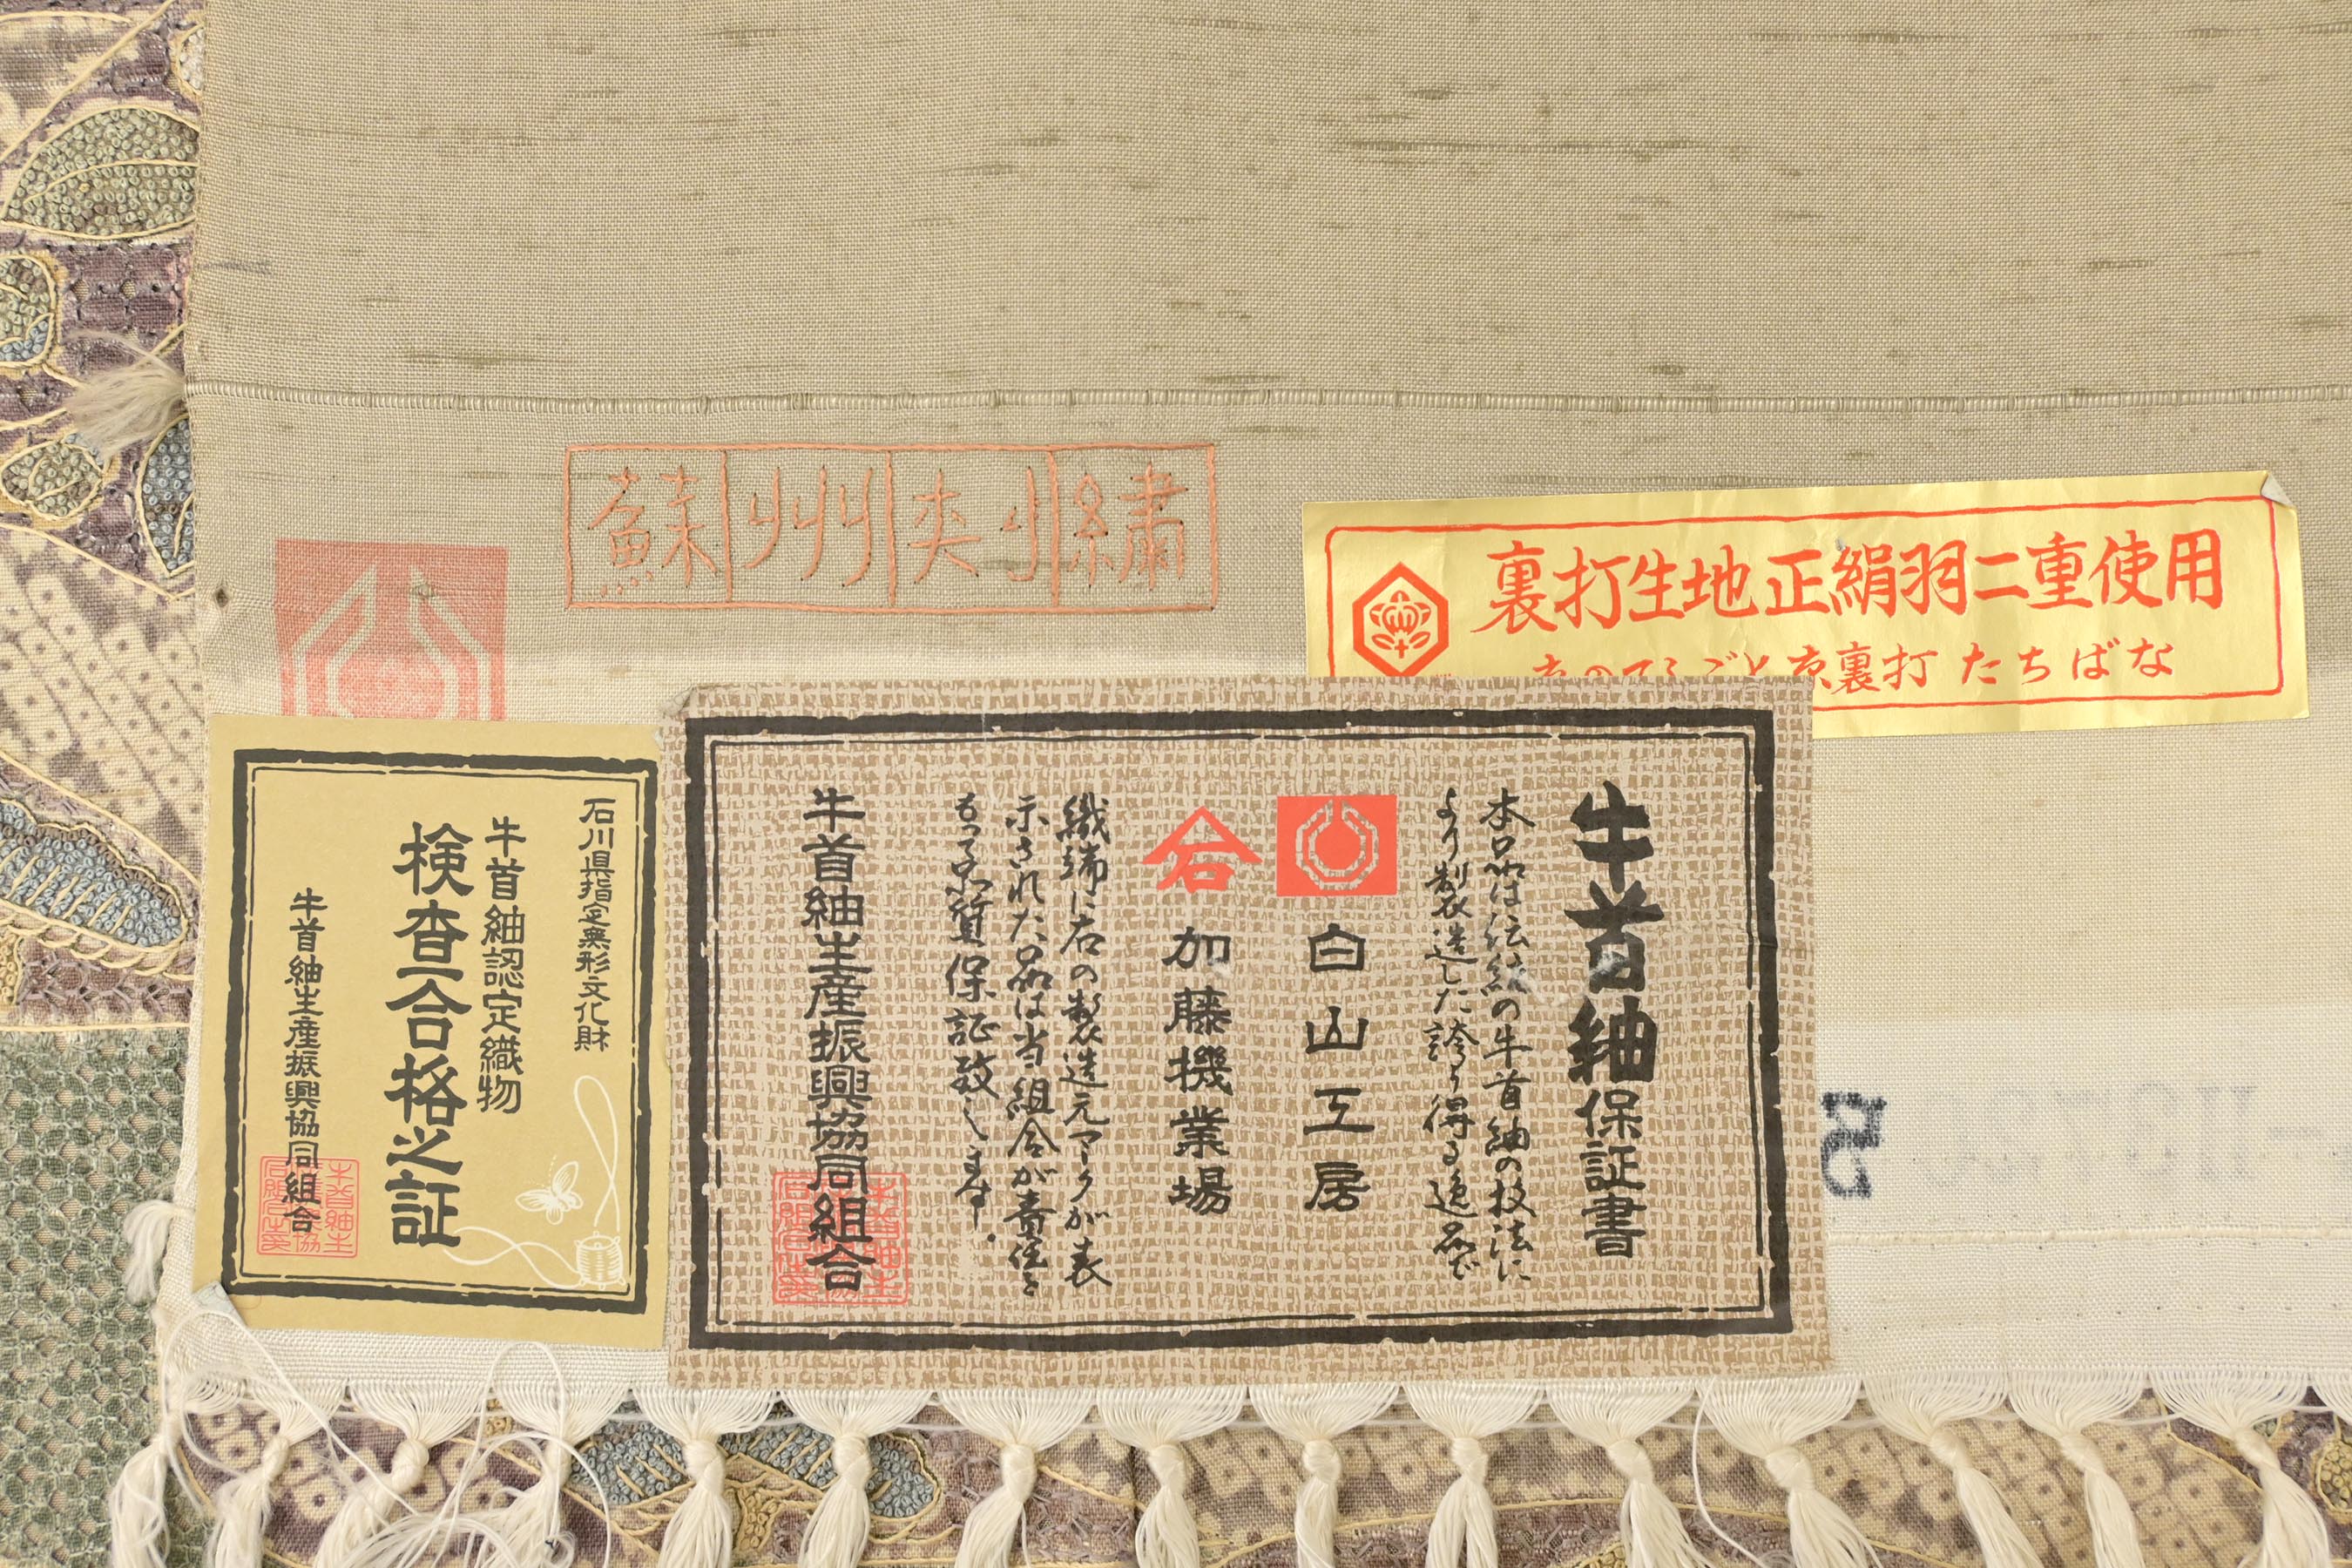 蘇州夾刂繍
裏打生地正絹羽二重使用
京裏打 たちばな
牛首紬保証書
本品は伝統の牛首紬の技法に
より製造した誇り得る逸品で
白山工房
加藤機業場
織端に右の製造元マークが表
示された品は当組合が責任を
もって品質保証致します.
牛首紬生産振興協同組合
石川県指定無形文化財
牛首紬認定織物
検査合格之証
牛首紬生産振興協同組合